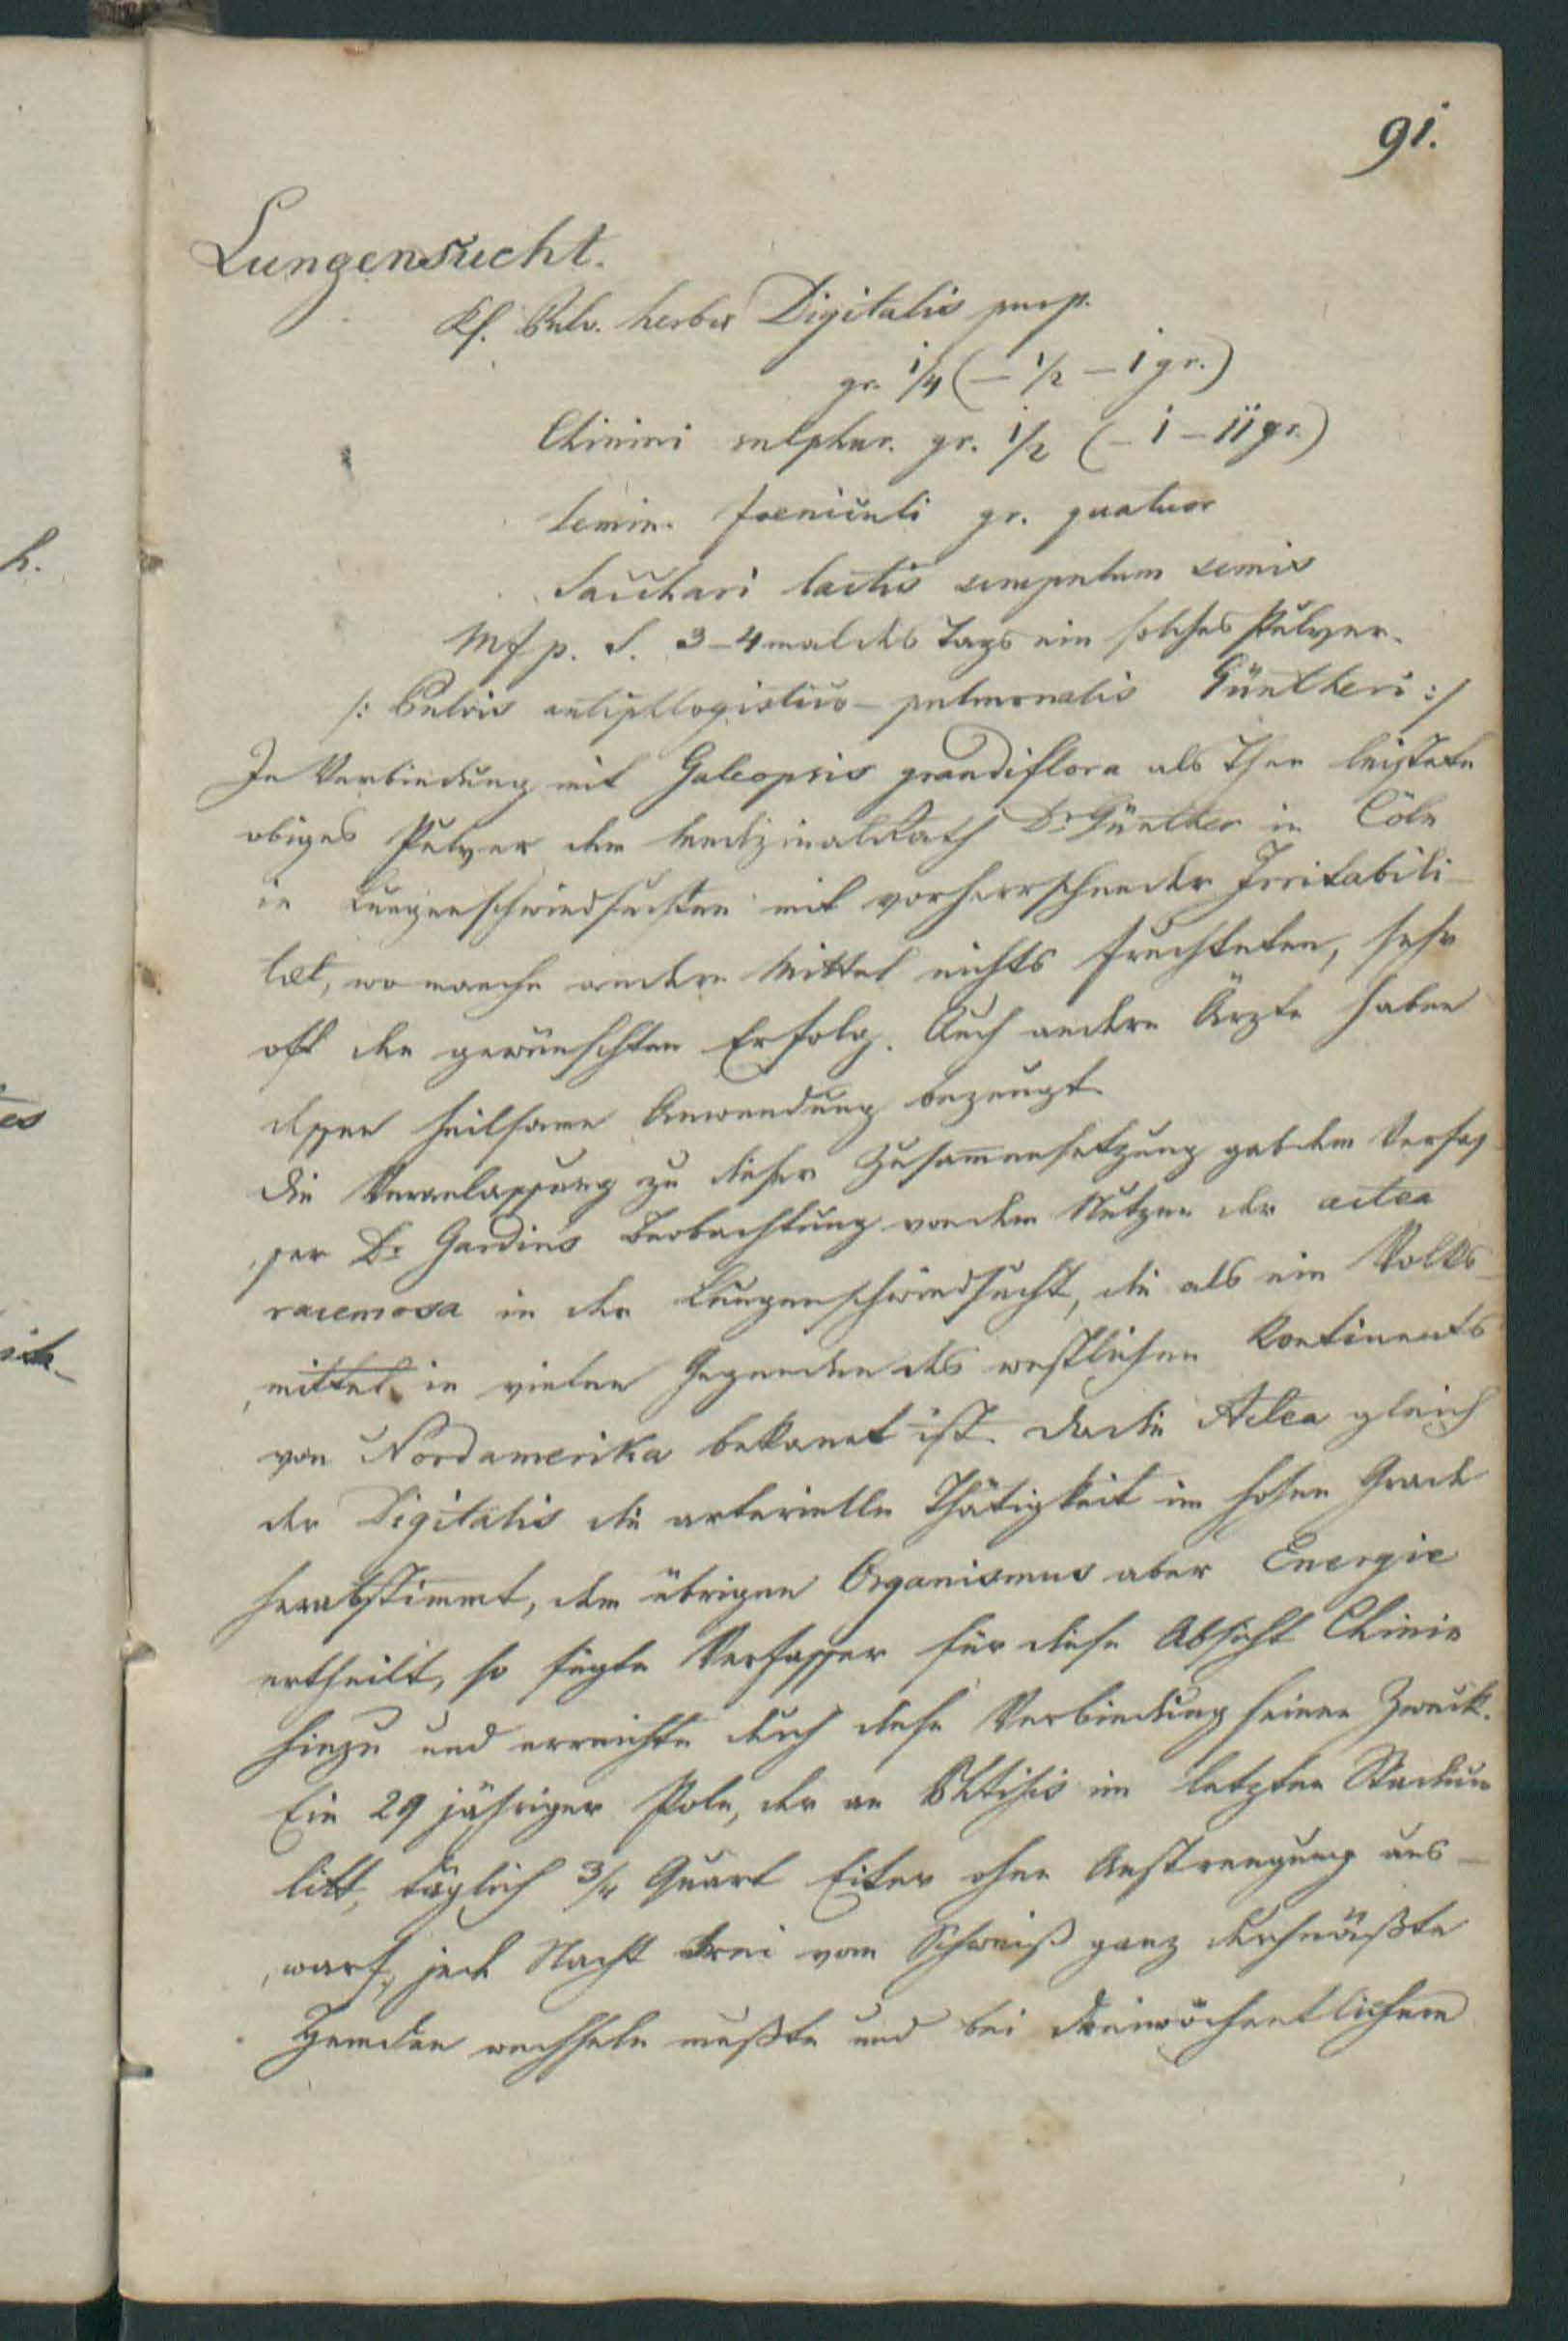 91.
Lungensucht.
Rf. Pulv. herbae Digitalis purp.
gr. 1/4 (– 1/2 – i gr.)
Chinini sulphur. gr. 1/2 (– i – ii gr.)
Semin. foeniculi gr. quatuor
Sacchari lactis scrupulum semis
Mf p. S. 3–4 mal des Tags ein solches Pulver.
/: Pulvis antiphlogistico – pulmonalis Güntheri :/
In Verbindung mit Galeopsis grandiflora als Thee leistete
obiges Pulver dem Medizinalrath Dr Günther in Cöln
in Lungenschwindsuchten mit vorherrschender Irritabili-
tæt, wo manche andere Mittel nichts fruchteten, sehr
oft den gewünschten Erfolg. Auch andere Ärzte haben
dessen heilsame Anwendung bezeugt.
Die Veranlassung zu dieser Zusammensetzung gab dem Verfas-
ser Dr Gardins Beobachtung von dem Nutzen der actea
racemosa in der Lungenschwindsucht, die als ein Volks-
mittel in vielen Gegenden des westlichen Kontinents
von Nordamerika bekannt ist. Da die Actea gleich
der Digitalis die arterielle Thätigkeit im hohen Grade
herabstimmt, dem übrigen Organismus aber Energie
ertheilt, so fügte Verfasser für diese Absicht Chinin
hinzu und erreichte durch diese Verbindung seinen Zweck.
Ein 29 jähriger Pole, der an Phtisis im letzten Stadium
litt, täglich 3/4 Quart Eiter ohne Anstrengung aus-
warf, jede Nacht drei vom Schweiß ganz durchnäßte
Hemden wechseln mußte und bei dreiwöchentlichem
h.
es